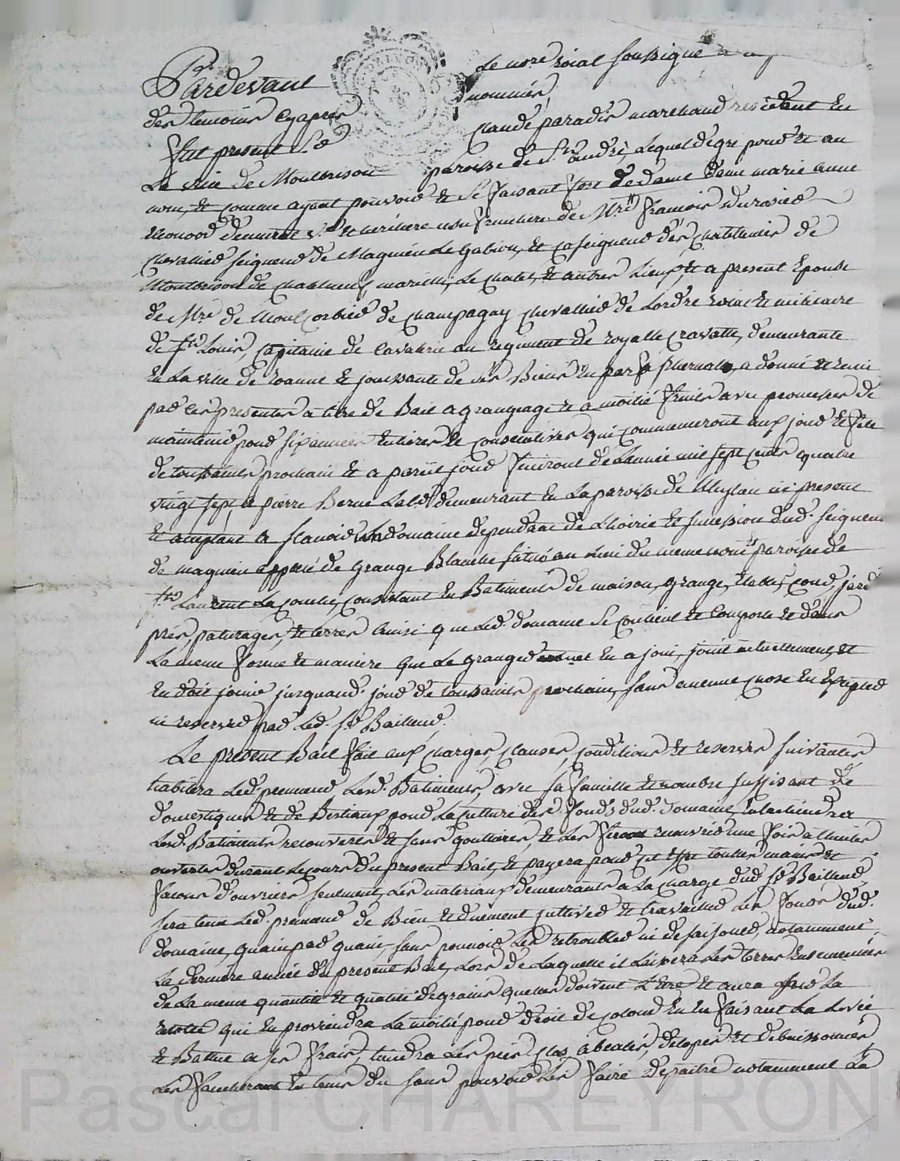 Pardevant Le no.re roial soussigné
des temoins cy apres nommés
fut present S.r Claude paradis marchand residant en
La ville de Montbrison paroisse de S.t andré, Lequel de gre pour et au
nom, et comme ayant pouvoir et se faisant fort de dame marie anne
demeurante et heritiere usufruitiere de M.re francois
chevallier seigneur de Magnieu Le Gabion, et coseigneur des Chatelenies de
Montbrison de Le Chatel, et autres Lieux, et a present Epouse
de M.re de Champagny chevallier de Lordre roial et militaire
de S.t Louis, Capitaine de Cavalerie au regiment de royalle Cravatte, demeurante
en La ville de roanne et jouissante de ses Biens a donné et remis
par ces presentes a titre de Bail a grangeage et a moitié fruits avec promesse de
maintenir pour six années entieres et consecutives qui commenceront aux jour et fete
de toussaints prochain et a pareil jour finiront de Lannée mil sept cents quatre
vingt sept a pierre Berne Lab.r demeurant en La paroisse de ici present
et acceptant a scavoir un domaine dependant de Lhoirie et succession dud. seigneur
de magnieu appellé de Grange Blanche situé au Lieu du meme nom paroisse de
S.t Laurent La conche, Consistant en Batiments de maison, grange, etable, cour, jardin
prés, paturages, et terres ainsi que Led. domaine se Contient et Comporte et dans
La meme forme et maniere que Le granger en a joui, jouit actuellement, et
en doit jouir jusquaud. jour de toussaints prochain, sans aucune chose en Excepter
ni reserver par Led. S.r Bailleur.
Le present Bail fait aux charges, clauses, conditions et reserves suivantes
habitera Led. preneur Lesd. Batiments, avec sa famille et nombre suffisant de
domestiques et de Bestiaux pour La culture des fonds dud. domaine, entretiendra
Lesd. Batiments recouverts et sans gouttieres, et Les recouvrir une fois a thuiles
ouvertes durant Le cours du present Bail, et payera pour cet effet toutes mains et
facons d'ouvriers seulement, Les materiaux demeurants a La charge dud. S.r Bailleur
sera tenu Led. preneur de Bien et duement cultiver et travailler Les fonds dud.
domaine, quart par quart, sans pouvoir Les retroubler ni dessaisonner notamment
La derniere année du present Bail, Lors de Laquelle il Laissera Les terres Ensemencées
de La meme quantité et qualité de grains quelles doivent L'etre et aura sur La
recolte qui en proviendra La moitié pour droit de colon en en faisant La Levée
et Battue a ses frais, tiendra Les prés clos, abealés, detopés et debuissonnés
Les fauchera en temps du sans pouvoir Les faire depaitre notamment La
Pascal CHAREYRON